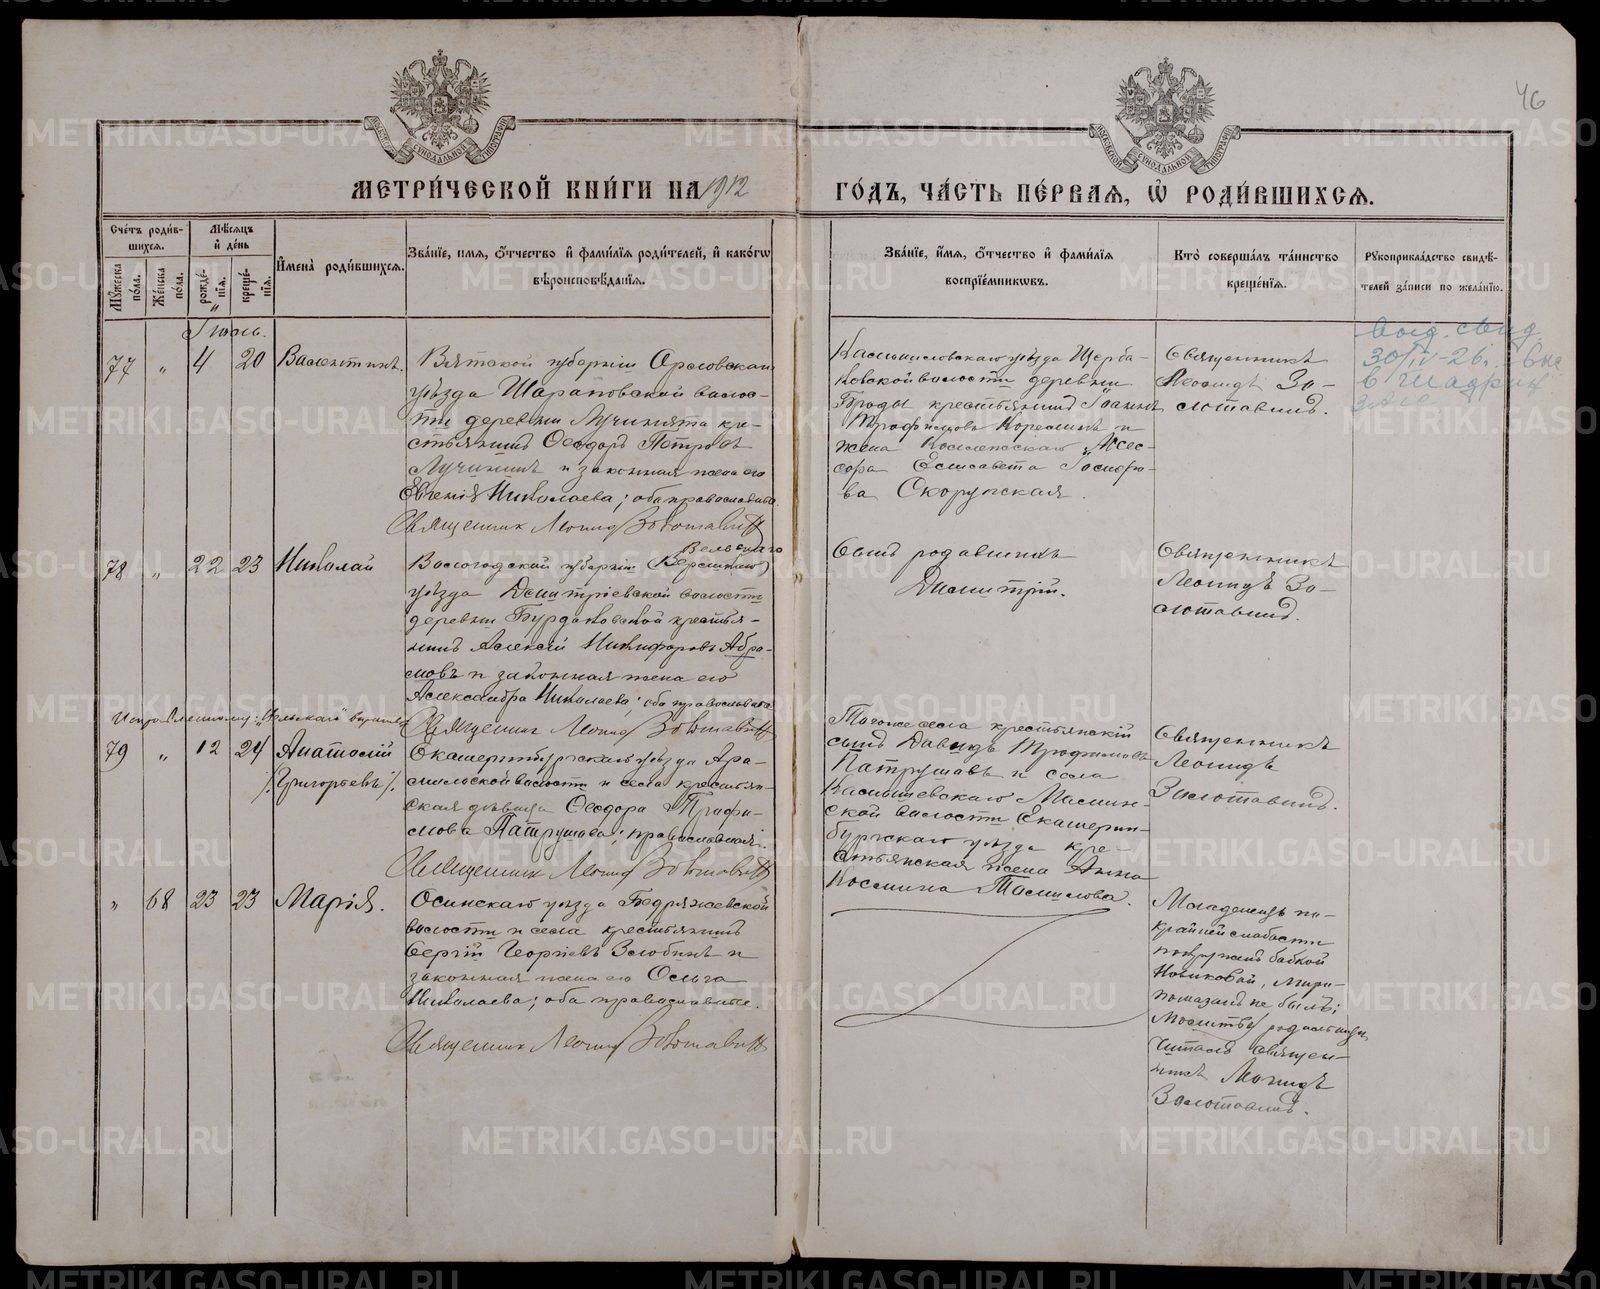 46
МЕТРИ́ЧЕСКОЙ КНИ́ГИ НА 1912
ГО́ДЪ, ЧА́СТЬ ПЕ́РВАЯ, Ѡ РОДИ́ВШИХСЯ.
Сче́тъ роди́в-
шихся.
Мѣ́сяцъ
и҆ де́нь
Мꙋ́жеска по́ла.
Же́нска по́ла.
рожде́нїя.
креще́нїя.
И҆мена̀ роди́вшихся.
Зва́нїе, и҆мя, ѻ҆́тчество и҆ фамилїя роди́телей, и҆ како́гѡ
вѣроисповѣ́данїя.
Зва́нїе, и҆́мя, ѻ҆́тчество и҆ фами́лїя
воспрїе́мникѡвъ.
Кто̀ соверша́лъ та́инство
креще́нїя.
Рꙋкоприкла́дство свидѣ́-
телей за́писи по жела́нїю.
Іюль.
77 " 4 20 Валентинъ.
Вятской губерніи Орловскаго
уѣзда Шарановской волос-
ти деревни Лучинята кре-
стьянинъ Ѳеодоръ Петровъ
Лучининъ и законная жена его
Евгенія Николаева; оба православные
Священник Леонид Золотавин
Камышловскаго уѣзда Щерба-
ковской волости деревни
Броды крестьянинъ Іоаннъ
Трофимовъ Корелинъ и
жена Коллежскаго Ассес-
сора Елисавета Іосифо-
ва Скорупская.
Священникъ
Леонидъ Зо-
лотавинъ.
Выд. свид
30/IV-26г.
в Шадрин
78 " 22 23 Николай
Вельскаго
Вологодской губерніи (Верскаго)
уѣзда Димитріевской волости
деревни Бурдаковской крестья-
нинъ Алексѣй Никифоровъ Абра-
мовъ и законная жена его
Александра Николаева; оба православные
Священник Леонид Золотавин
Сынъ родавшихъ
Димитрій.
Священникъ
Леонидъ Зо-
лотавинъ.
79 " 12 24 Анатолій
/Григорьевъ/.
Екатеринбургскаго уѣзда Ара-
мильской волости и села крестьян-
ская дѣвица Ѳеодора Трофи-
мова Патрушева; православная.
Священник Леонид Золотавин
Тогоже села крестьянскій
сынъ Давидъ Трофимовъ
Патрушевъ и села
Малин-
ской волости Екатерин-
бургскаго уѣзда кре-
стьянская жена Анна
Космина Томилова.
Священникъ
Леонидъ
Золотавинъ.
" 68 23 23 Марія.
Осинскаго уѣзда Бедряжевской
волости и села крестьянинъ
Сергій Георгіевъ Злобинъ и
законная жена его Ольга
Николаева; оба православные.
Священник Леонид Золотавин
Младенецъ по
крайней слабости
погружена бабкой
Новиковой, миро-
помазанъ не былъ;
Молитву родильницы
читалъ священ-
никъ Леонидъ
Золотавинъ.